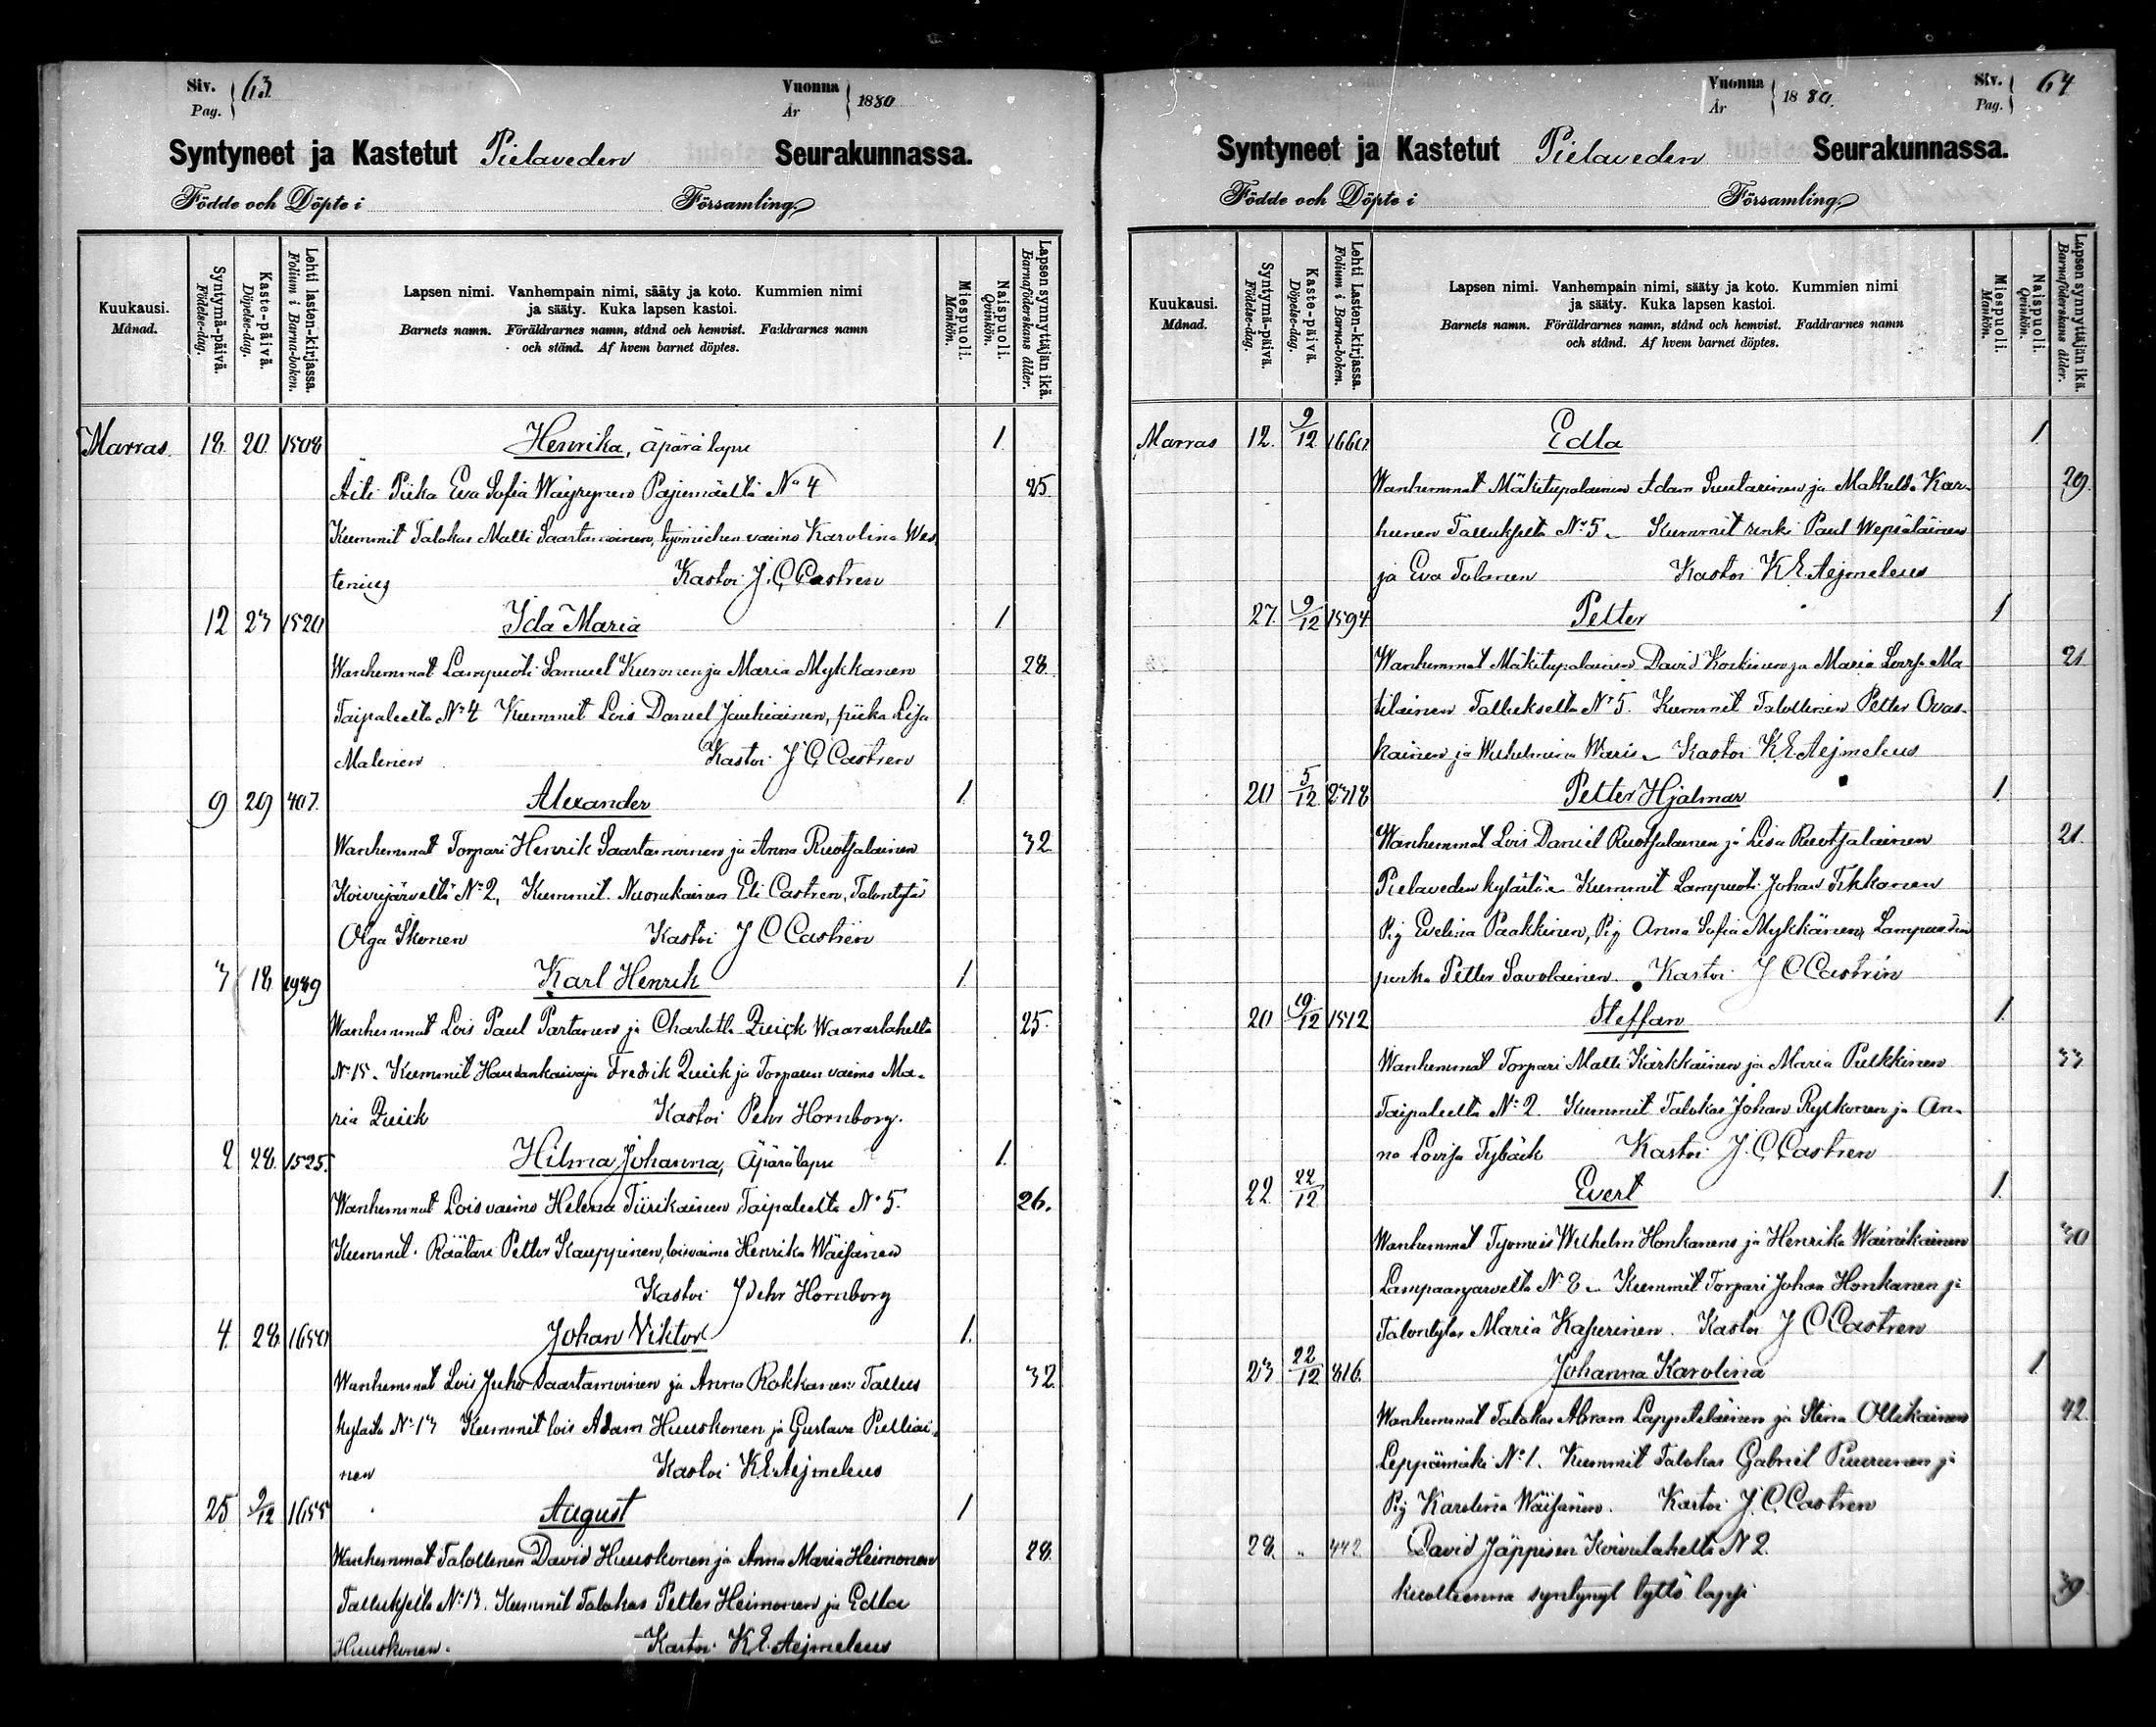 Siv. Pag. 63
Vuonna År 1880
Syntyneet ja Kastetut Pielaveden Seurakunnassa.
Födde och Döpte i Församling.
Kuukausi. Månad.
Syntymä-päivä. Födelse-dag.
Kaste-päivä. Döpelse-dag.
Lehti lasten-kirjassa. Folium i Barna-boken.
Lapsen nimi. Vanhempain nimi, sääty ja koto. Kummien nimi
ja sääty. Kuka lapsen kastoi.
Barnets namn. Föräldrarnes namn, stånd och hemvist. Faddrarnes namn
och stånd. Af hvem barnet döptes.
Miespuoli. Mankön.
Naispuoli. Qvinkön.
Lapsen synnyttäjän ikä. Barnaföderskans ålder.
Marras. 18. 20. 1508 Henrika, äpärä lapsi 1.
Äiti Piika Eva Sofia Wäyrynen Pajumäeltä No 4 25.
Kummit Talokas Matti Saastamoinen, työmiehen vaimo Karolina Wes
tenius Kastoi J. C. Castren
12 23 1520 Ida Maria 1.
Wanhemmat Lampuoti Samuel Kuronen ja Maria Mykkanen 28.
Taipaleelta No 4 Kummit Lois Daniel Jauhiainen, piika Lisa
Malinen Kastoi J C. Castren
9 29 407. Alexander 1.
Wanhemmat Torpari Henrik Saastamoinen ja Anna Ruotsalainen 32
Koivujärveltä No 2, Kummit. Nuorukainen Eli Castren, Talontytär
Olga Ikonen Kastoi J C Castren
3 18 1989 Karl Henrik 1
Wanhemmat Lois Paul Partanen ja Charlotta Quick Waaraslahelta 25.
No 15. Kummit Haudankaivaja Fredrik Quick ja Torparin vaimo Ma-
ria Quick Kastoi Pehr Hornborg.
2 28. 1525. Hilma Johanna, Äpärä lapsi 1.
Wanhemmat Lois vaimo Helena Tiirikainen Taipaleelta No 5. 26.
Kummit. Räätari Petter Kauppinen, lois vaimo Henrika Wäisänen
Kastoi Pehr Hornborg
4. 28. 1650 Johan Viktor 1.
Wanhemmat Lois Juho Saastamoinen ja Anna Rokkanen Tallus 32.
kylästä No 13 Kummit lois Adam Huuskonen ja Gustava Pielliäi-
nen Kastoi K. E. Aejmeleus
25 9/12 1655 August 1
Wanhemmat Talollinen David Huuskonen ja Anna Maria Heimonen 28.
Talluksella No 13. Kummit Talokas Petter Heimonen ja Edla
Huuskonen. Kastoi K. E. Aejmeleus
Vuonna År 1880.
Siv. Pag. 64
Syntyneet ja Kastetut Pielaveden Seurakunnassa.
Födde och Döpte i Församling.
Kuukausi. Månad.
Syntymä-päivä. Födelse-dag.
Kaste-päivä. Döpelse-dag.
Lehti Lasten-kirjassa. Folium i Barna-boken.
Lapsen nimi. Vanhempain nimi, sääty ja koto. Kummien nimi
ja sääty. Kuka lapsen kastoi.
Barnets namn. Föräldrarnes namn, stånd och hemvist. Faddrarnes namn
och stånd. Af hvem barnet döptes.
Miespuoli. Mankön.
Naispuoli. Qvinkön.
Lapsen synnyttäjän ikä. Barnaföderskans ålder.
Marras 12. 9/12 1660. Edla 1.
Wanhemmat Mäkitupalainen Adam Suutarinen ja Mathilda Kar- 29.
hunen Talluksella No 5. Kummit renki Paul Wepsäläinen
ja Eva Talanen Kastoi K. E. Aejmeleus
27. 9/12 1594 Petter 1
Wanhemmat Mäkitupalainen David Korkinen ja Maria Lovisa Ma 21
tilainen Talluksella No 5. Kummit Talollinen Petter Ovas-
kainen ja Wilhelmina Waris. Kastoi K. E. Aejmeleus
20 5/12 2318 Petter Hjalmar 1.
Wanhemmat Lois Daniel Ruotsalainen ja Lisa Ruotsalainen 21.
Pielaveden kylästä. Kummit Lampuoti Johan Tikkanen
Pig Evelina Paakkinen, Pig Anna Sofia Mykkänen, Lampuodin
poika Petter Savolainen. Kastoi J C Castrén
20 19/12 1512 Steffan 1.
Wanhemmat Torpari Matti Kärkkäinen ja Maria Pulkkinen 33
Taipaleelta No 2 Kummit Talokas Johan Rytkonen ja An-
na Lovisa Tybäck Kastoi J. C. Castren
22. 22/12 Evert 1.
Wanhemmat Tyomies Wilhelm Honkanen ja Henrika Wainikainen 30
Lampaanjarvelta N 8. Kummit Torpari Johan Honkanen ja
Talontytär Maria Kasurinen. Kastoi J C Castren
23 22/12 816. Johanna Karolina 1.
Wanhemmat Talokas Abram Lappeteläinen ja Stina Ollikainen 42.
Leppämäki No 1. Kummit Talokas Gabriel Puurunen ja
Pig Karolina Wäisänen. Kastoi J. C. Castren
28. " 442. David Jäppisen Koivulahelta N 2.
kuolleenna syntynyt tyttö lapsi 39.